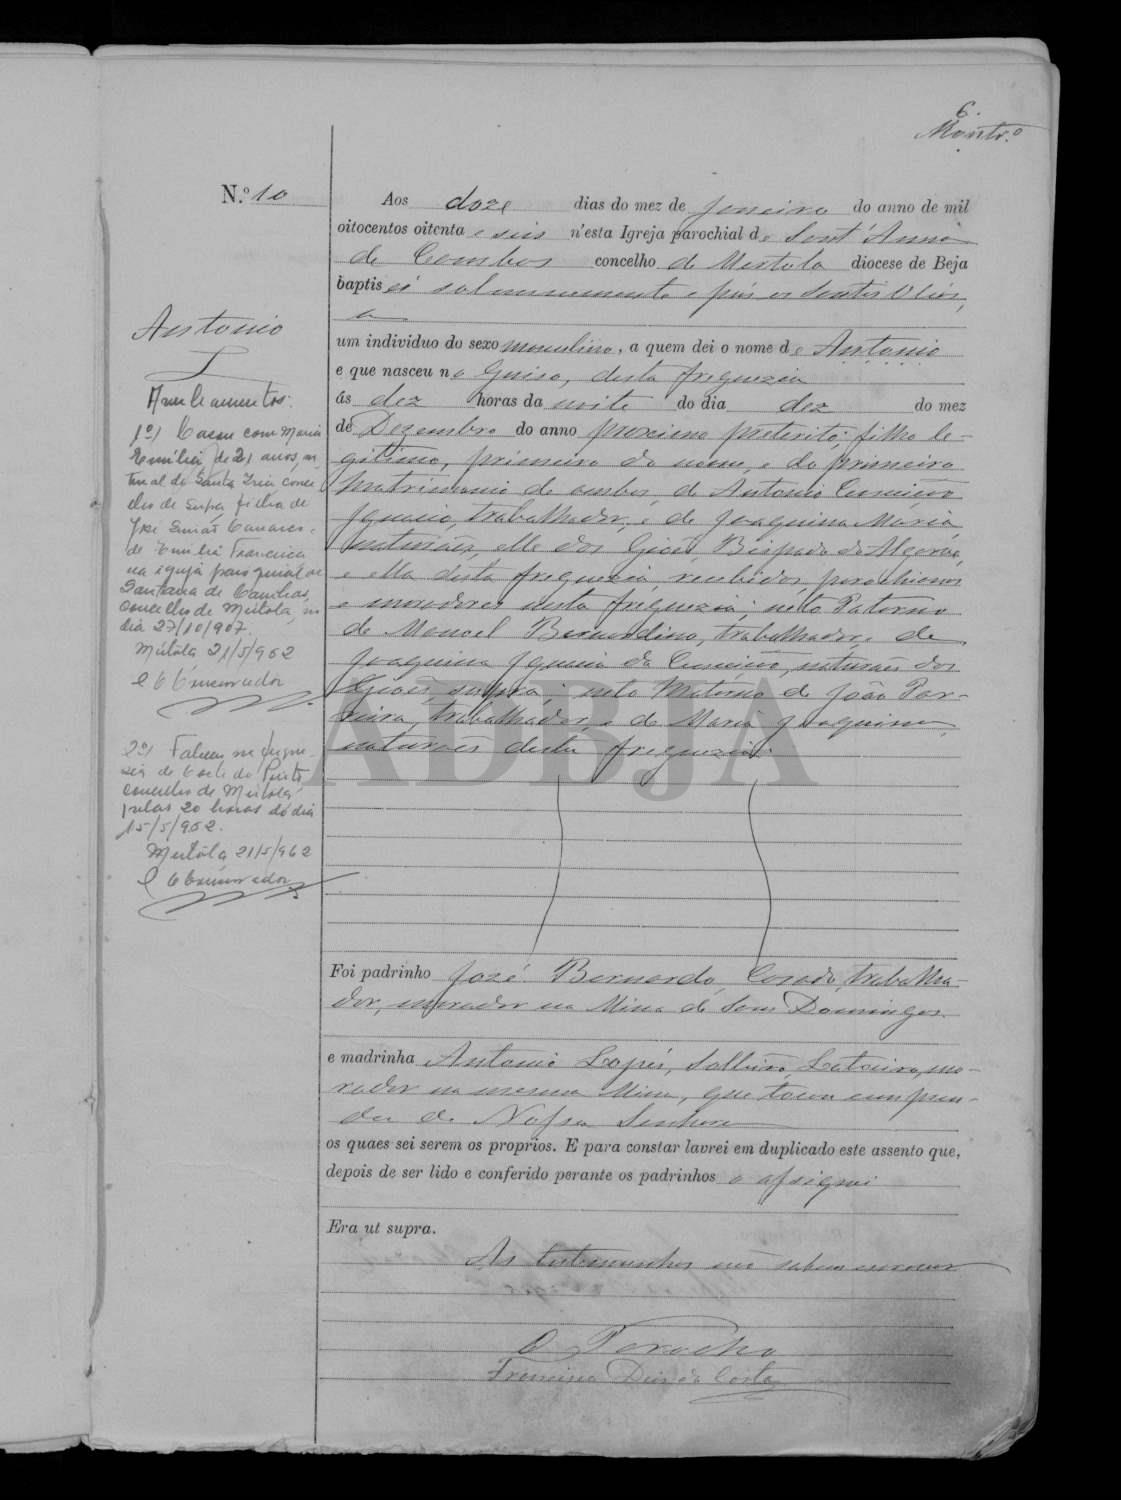 6.
Montr.º
N.º 10
Aos doze dias do mez de Janeiro do anno de mil
oitocentos oitenta e seis n'esta Igreja parochial de Sant'Anna
de Cambas concelho de Mertola diocese de Beja
baptisei solemnemente e puz os Santos Oleos,
a
um individuo do sexo masculino, a quem dei o nome de Antonio
e que nasceu no Guiso, desta freguezia
ás dez horas da noite do dia dez do mez
de Dezembro do anno proximo preterito; filho le-
gitimo, primeiro do nome, e do primeiro
matrimonio de ambos, de Antonio
Ignacio, trabalhador, e de Joaquina Maria
naturaes, elle dos Gioes, Bispado do Algarve,
e ella desta freguezia, recebidos, parochianos
e moradores nesta freguezia; neto Paterno
de Manoel Bernardino, trabalhador, e de
Joaquina Ignacia da naturaes dos
Gioes, supra; neto Materno de João Par-
reira, trabalhador, e de Maria Joaquina,
naturaes desta freguezia.
Foi padrinho José Bernardo, Casado, trabalha-
dor, morador na Mina de Sam Domingos.
e madrinha Antonio Lopes, Solteiro, Latoeiro, mo-
rador na mesma Mina, que tocou com pren-
da de Nossa Senhora
os quaes sei serem os proprios. E para constar lavrei em duplicado este assento que,
depois de ser lido e conferido perante os padrinhos o assignei
Era ut supra.
As testemunhas não sabem escrever
O Parocho
Francisco Dias da Costa
Antonio
Averbamentos:
1º) Casou com Maria
Emilia, de 21 anos, na
tural de Santa Iria conce
lho de Serpa filha de
José Simão e
de Emilia Francisca
na igreja paroquial de
Santana de Cambas,
concelho de Mértola, no
dia 27/10/907.
Mértola, 21/5/962
O Conservador
2º) Faleceu na fregue-
sia de Corte do Pinto
concelho de Mértola
pelas 20 horas do dia
15/5/962.
Mértola, 21/5/962
O Conservador
ADBJA